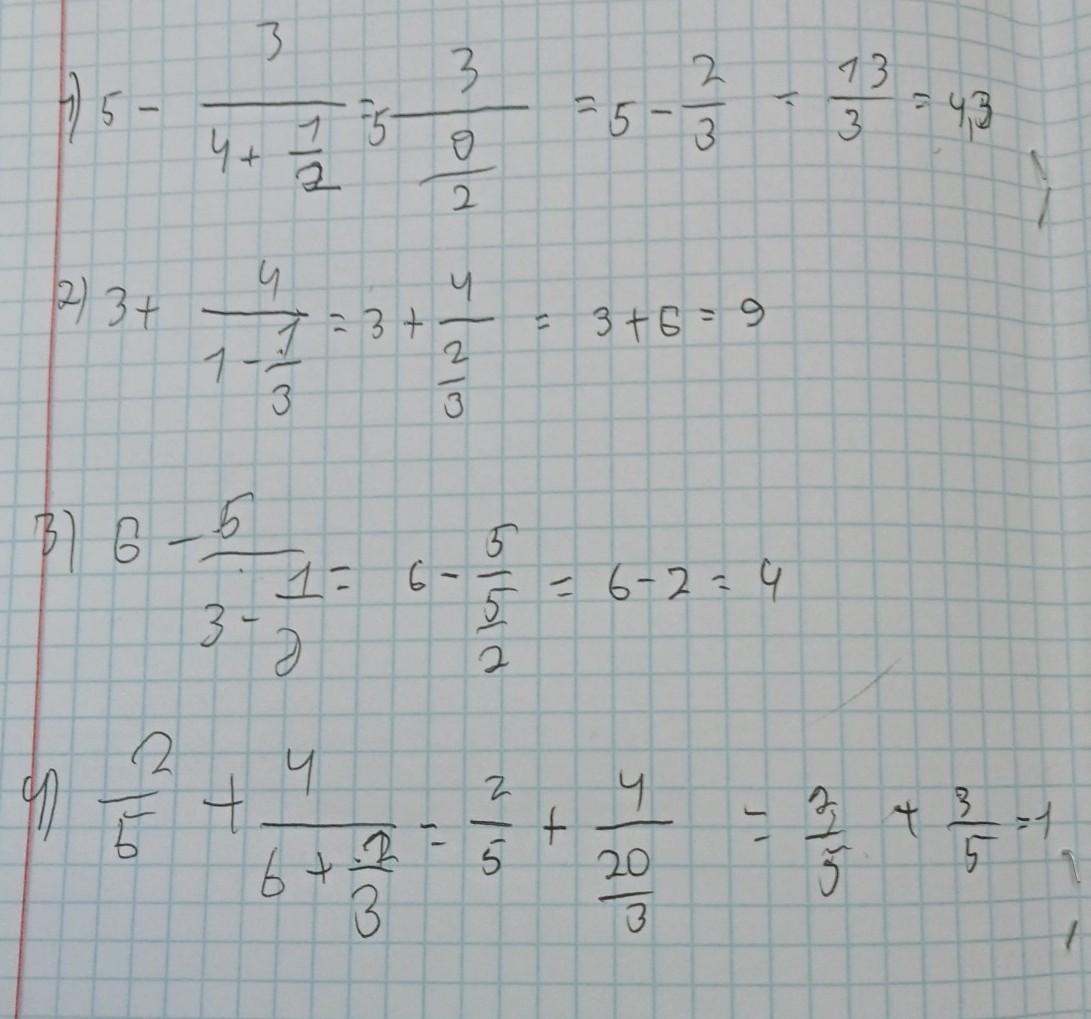 1) 5 - 3/(4 + 1/2) = 5 3/(9/2) = 5 - 2/3 - 13/3 = 4,3
2) 3 + 4/(1 - 1/3) = 3 + 4/(2/3) = 3 + 6 = 9
3) 6 - 5/(3 - 1/2) = 6 - 5/(5/2) = 6 - 2 = 4
4) 2/5 + 4/(6 + 2/3) = 2/5 + 4/(20/3) = 2/5 + 3/5 = 1